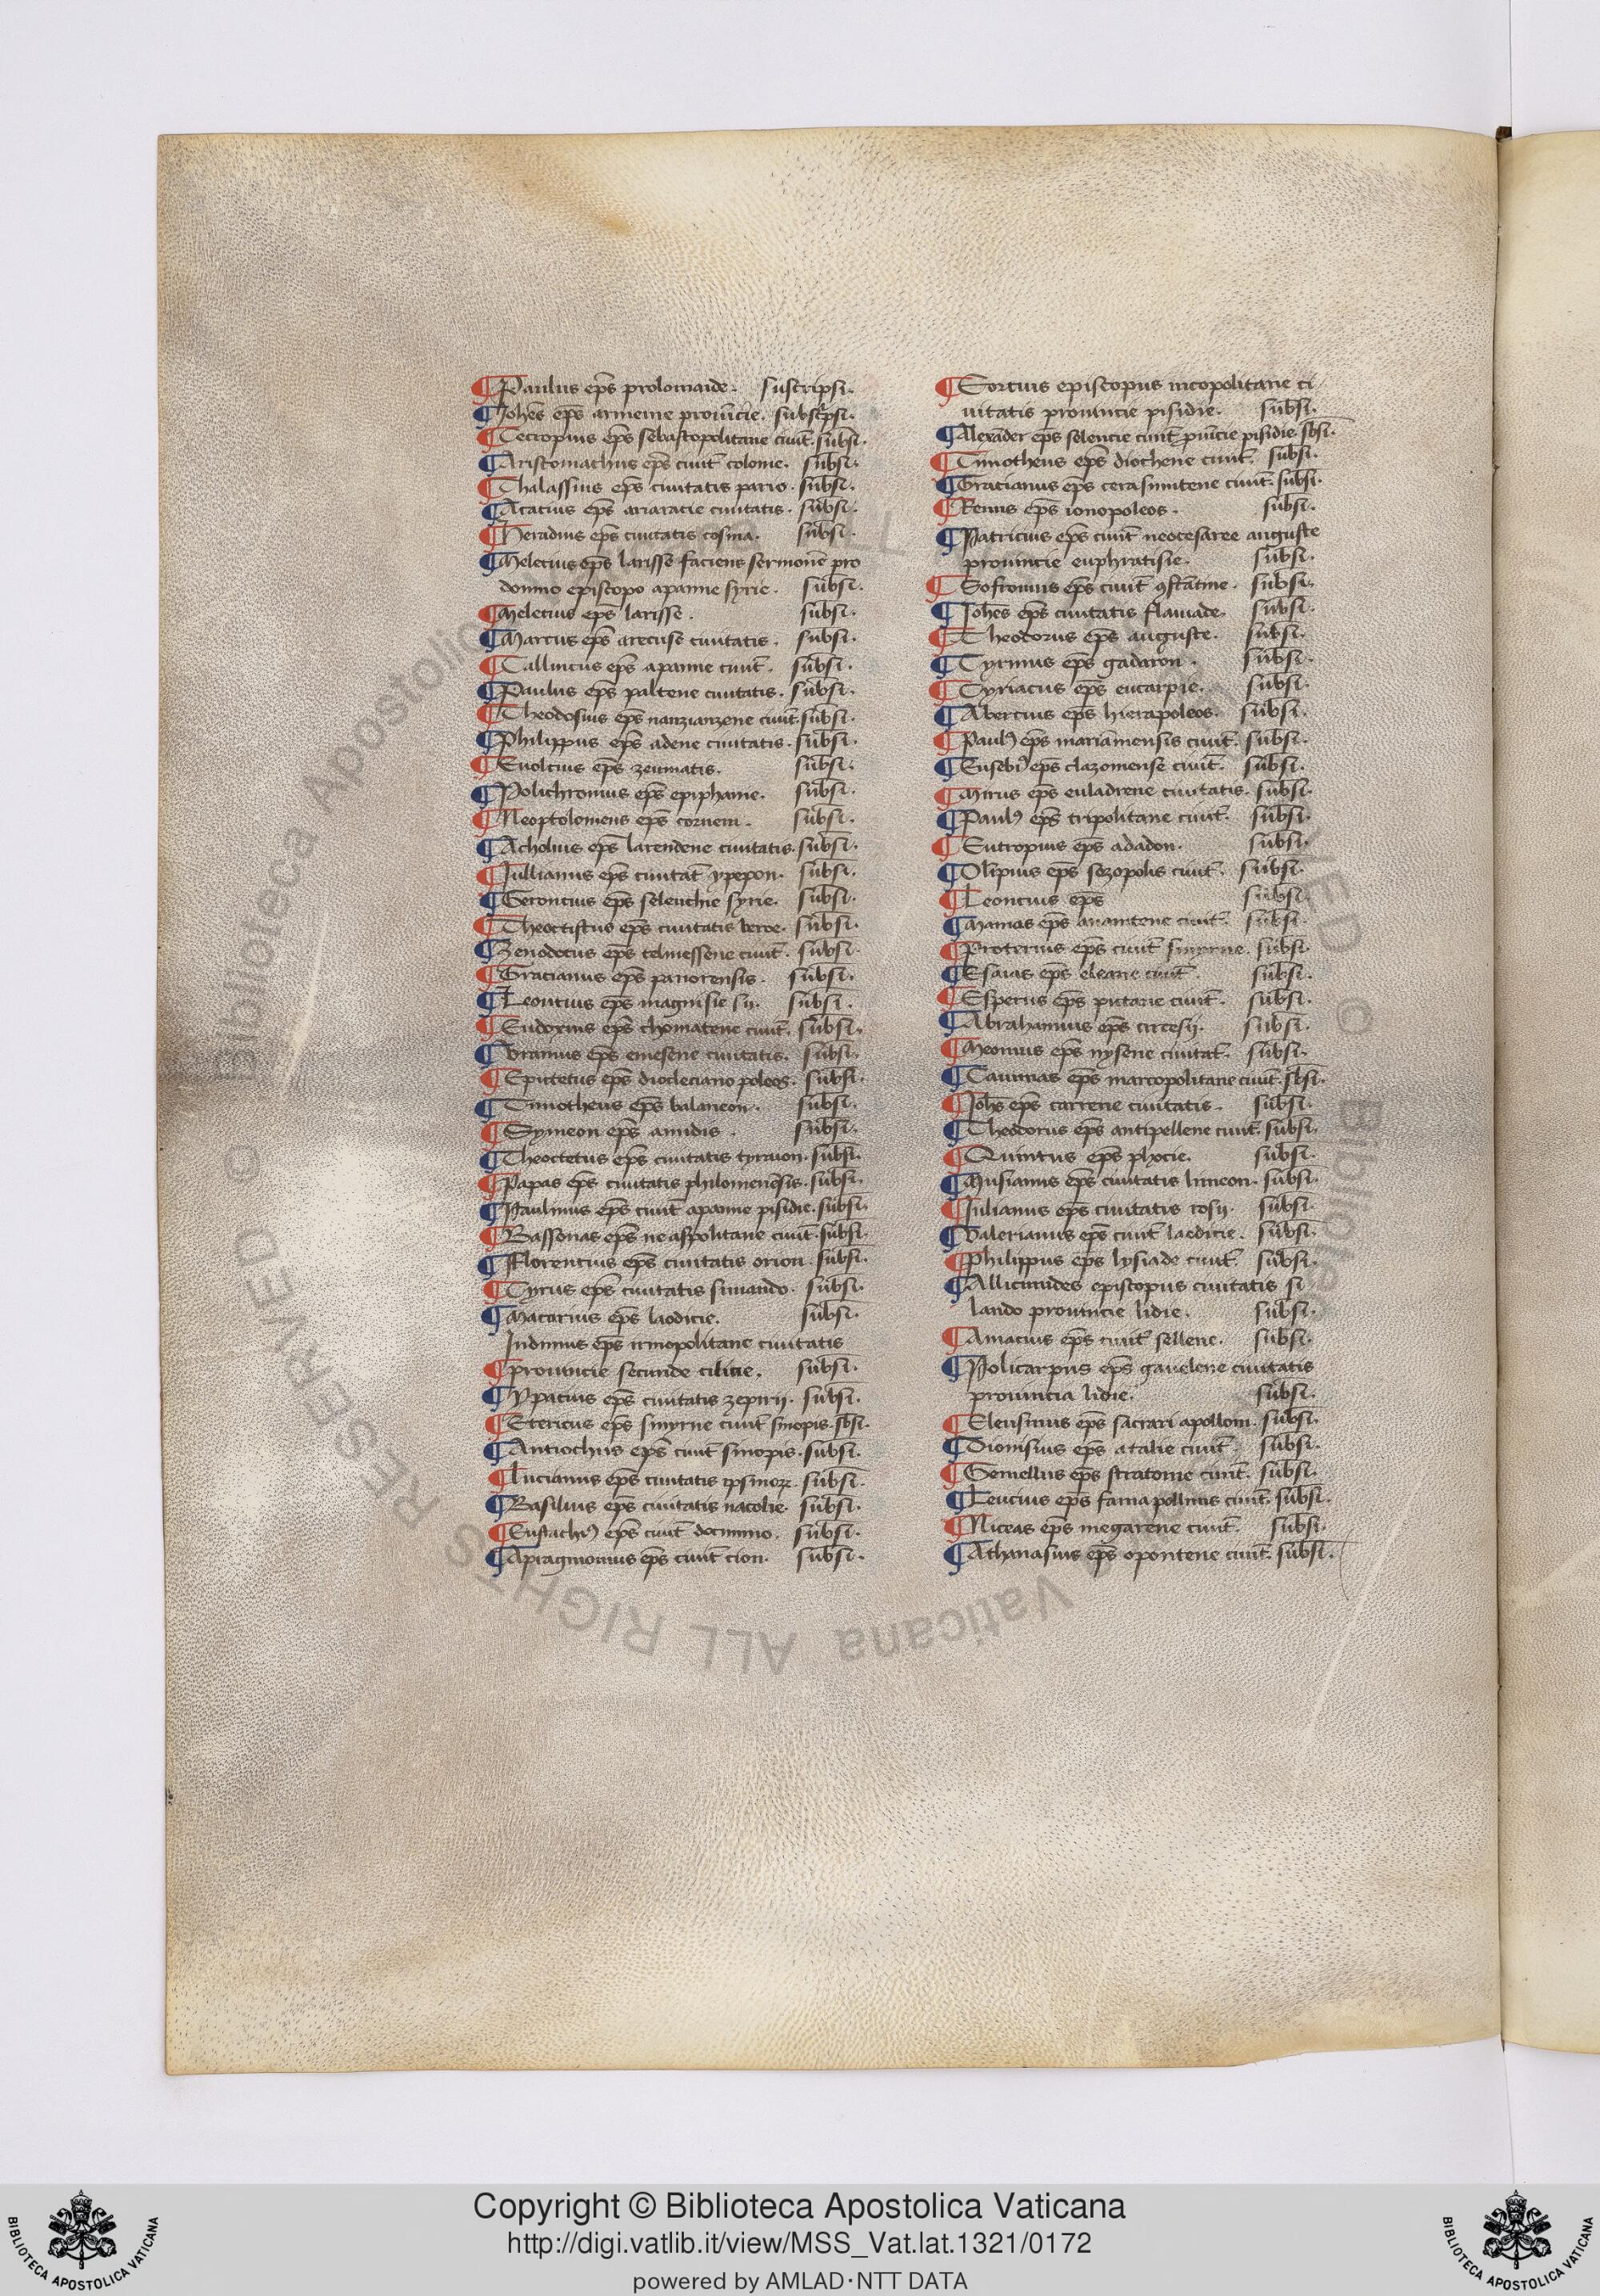 ¶ Paulus ep̄s prolomaide. suscripsi.
¶ Joh̄es ep̄s armenie prouīcie. subsc̄psi.
¶ Cecropius ep̄s sebastopolitane ciuit̄. sūbsi.
¶ Aristomachus ep̄s ciuit̄ colonie. sūbsi.
¶ Thalassius ep̄s ciuitatis pario. sūbsi.
¶ Acacius ep̄s ariaracie ciuitatis. sūbsi.
¶ Heradius ep̄s ciuitatis cosma. sūbsi.
¶ Melecius ep̄s larisse faciens sermonē pro
domno episcopo apanne syrie. sūbsi.
¶ Melecius ep̄s larisse. sūbsi.
¶ Marcus ep̄s arecuse ciuitatis. sūbsi.
¶ Callinicus ep̄s apanne ciuit̄. sūbsi.
¶ Paulus ep̄s paltene ciuitatis. sūbsi.
¶ Theodosius ep̄s nanzianzene ciuit̄. sūbsi.
¶ Philippus ep̄s adene ciuitatis. sūbsi.
¶ Euolcius ep̄s zeumatis. sūbsi.
¶ Polichronius ep̄s epiphanie. sūbsi.
¶ Neoptolomeus ep̄s cornem. sūbsi.
¶ Acholius ep̄s larendene ciuitatis. sūbsi.
¶ Jullianus ep̄s ciuitat̄ ypepon. sūbsi.
¶ Geroncius ep̄s seleuchie syrie. sūbsi.
¶ Theoctistus ep̄s ciuitatis beroe. sūbsi.
¶ Zenodocus ep̄s telmessene ciuit̄. sūbsi.
¶ Gracianus ep̄s panorensis. sūbsi.
¶ Leoncius ep̄s magnisie sy. sūbsi.
¶ Eudoxius ep̄s chomatene ciuit̄. sūbsi.
¶ Vranius ep̄s emesene ciuitatis. sūbsi.
¶ Epictetus ep̄s diocleciano poleos. sūbsi.
¶ Timotheus ep̄s balaneon. sūbsi.
¶ Symeon ep̄s amidis. sūbsi.
¶ Theoctetus ep̄s ciuitatis tyraion. sūbsi.
¶ Papas ep̄s ciuitatis philomenēsis. sūbsi.
¶ Paulinus ep̄s ciuit̄ apanne pisidie. sūbsi.
¶ Bassonas ep̄s neaspolitane ciuit̄. sūbsi.
¶ Florencius ep̄s ciuitatis orion. sūbsi.
¶ Cyrus ep̄s ciuitatis simando. sūbsi.
¶ Macarius ep̄s laodicie. sūbsi.
Indimus ep̄s irmopolitane ciuitatis
¶ prouincie secunde cilicie. sūbsi.
¶ Ypacius ep̄s ciuitatis zepirij. sūbsi.
¶ Etericus ep̄s smyrne ciuit̄ sinopis. sbsi.
¶ Antiochus ep̄s ciuit̄ sinopis. sūbsi.
¶ Lucianus ep̄s ciuitatis sūbsi.
¶ Basilius ep̄s ciuitatis nacolie. sūbsi.
¶ Eustachiꝰ ep̄s ciuit̄ docimino. sūbsi.
¶ Apragmonius ep̄s ciuit̄ cion. sūbsi.
¶ Eortius episcopus nicopolitane ci
uitatis prouincie pisidie. sūbsi.
¶ Alexāder ep̄s seleucie ciuit̄ puīcie pisidie. sbsi.
¶ Timotheus ep̄s diochene ciuit̄. sūbsi.
¶ Gracianus ep̄s cerasuntene ciuit̄. sūbsi.
¶ Renus ep̄s ionopoleos. sūbsi.
¶ Patricius ep̄s ciuit̄ neocesaree auguste
prouincie euphratisie. sūbsi.
¶ Sofronius ep̄s ciuit̄ ꝯstātine. sūbsi.
¶ Joh̄es ep̄s ciuitatis flauiade. sūbsi.
¶ Theodorus ep̄s auguste. sūbsi.
¶ Cyrinus ep̄s gadaron. sūbsi.
¶ Cyriacus ep̄s eucarpie. sūbsi.
¶ Abercius ep̄s hierapoleos. sūbsi.
¶ Paulꝰ ep̄s mariamensis ciuit̄. sūbsi.
¶ Eusebiꝰ ep̄s clazomense ciuit̄. sūbsi.
¶ Mirus ep̄s euladrene ciuitatis. sūbsi.
¶ Paulꝰ ep̄s tripolitane ciuit̄. sūbsi.
¶ Eutropius ep̄s adadon. sūbsi.
¶ Olīpius ep̄s sozopolis ciuit̄. sūbsi.
¶ Leoncius ep̄s sūbsi.
¶ Mamas ep̄s anamtene ciuit̄. sūbsi.
¶ Proterius ep̄s ciuit̄ smyrne. sūbsi.
¶ Esaias ep̄s eleane ciuit̄. sūbsi.
¶ Esperus ep̄s pictane ciuit̄. sūbsi.
¶ Abrahamius ep̄s circesij. sūbsi.
¶ Meonius ep̄s nysene ciuitat̄. sūbsi.
¶ Caiumas ep̄s marcopolitane ciuit̄. sbsi.
¶ Joh̄s ep̄s carrene ciuitatis. sūbsi.
¶ Theodorus ep̄s antipellene ciuit̄. sūbsi.
¶ Quintus ep̄s phocie. sūbsi.
¶ Musianus ep̄s ciuitatis limeon. sūbsi.
¶ Julianus ep̄s ciuitatis rosij. sūbsi.
¶ Valerianus ep̄s ciuit̄ laodicie. sūbsi.
¶ Philippus ep̄s lysiade ciuit̄ sūbsi.
¶ Allicimides episcopus ciuitatis si
lando prouincie lidie. sūbsi.
¶ Amacius ep̄s ciuit̄ sellene. sūbsi.
¶ Policarpus ep̄s gauelene ciuitatis
prouincia lidie. sūbsi.
¶ Eleusinus ep̄s sacrari apollom. sūbsi.
¶ Dionisius ep̄s atalie ciuit̄. sūbsi.
¶ Gemellus ep̄s stratonie ciuit̄. sūbsi.
¶ Leucius ep̄s fama pollinis ciuit̄. sūbsi.
¶ Niceas ep̄s megarene ciuit̄. sūbsi.
¶ Athanasius ep̄s opontene ciuit̄. sūbsi.
Copyright © Biblioteca Apostolica Vaticana
http://digi.vatlib.it/view/MSS_Vat.lat.1321/0172
powered by AMLAD·NTT DATA
BIBLIOTECA APOSTOLICA VATICANA
BIBLIOTECA APOSTOLICA VATICANA